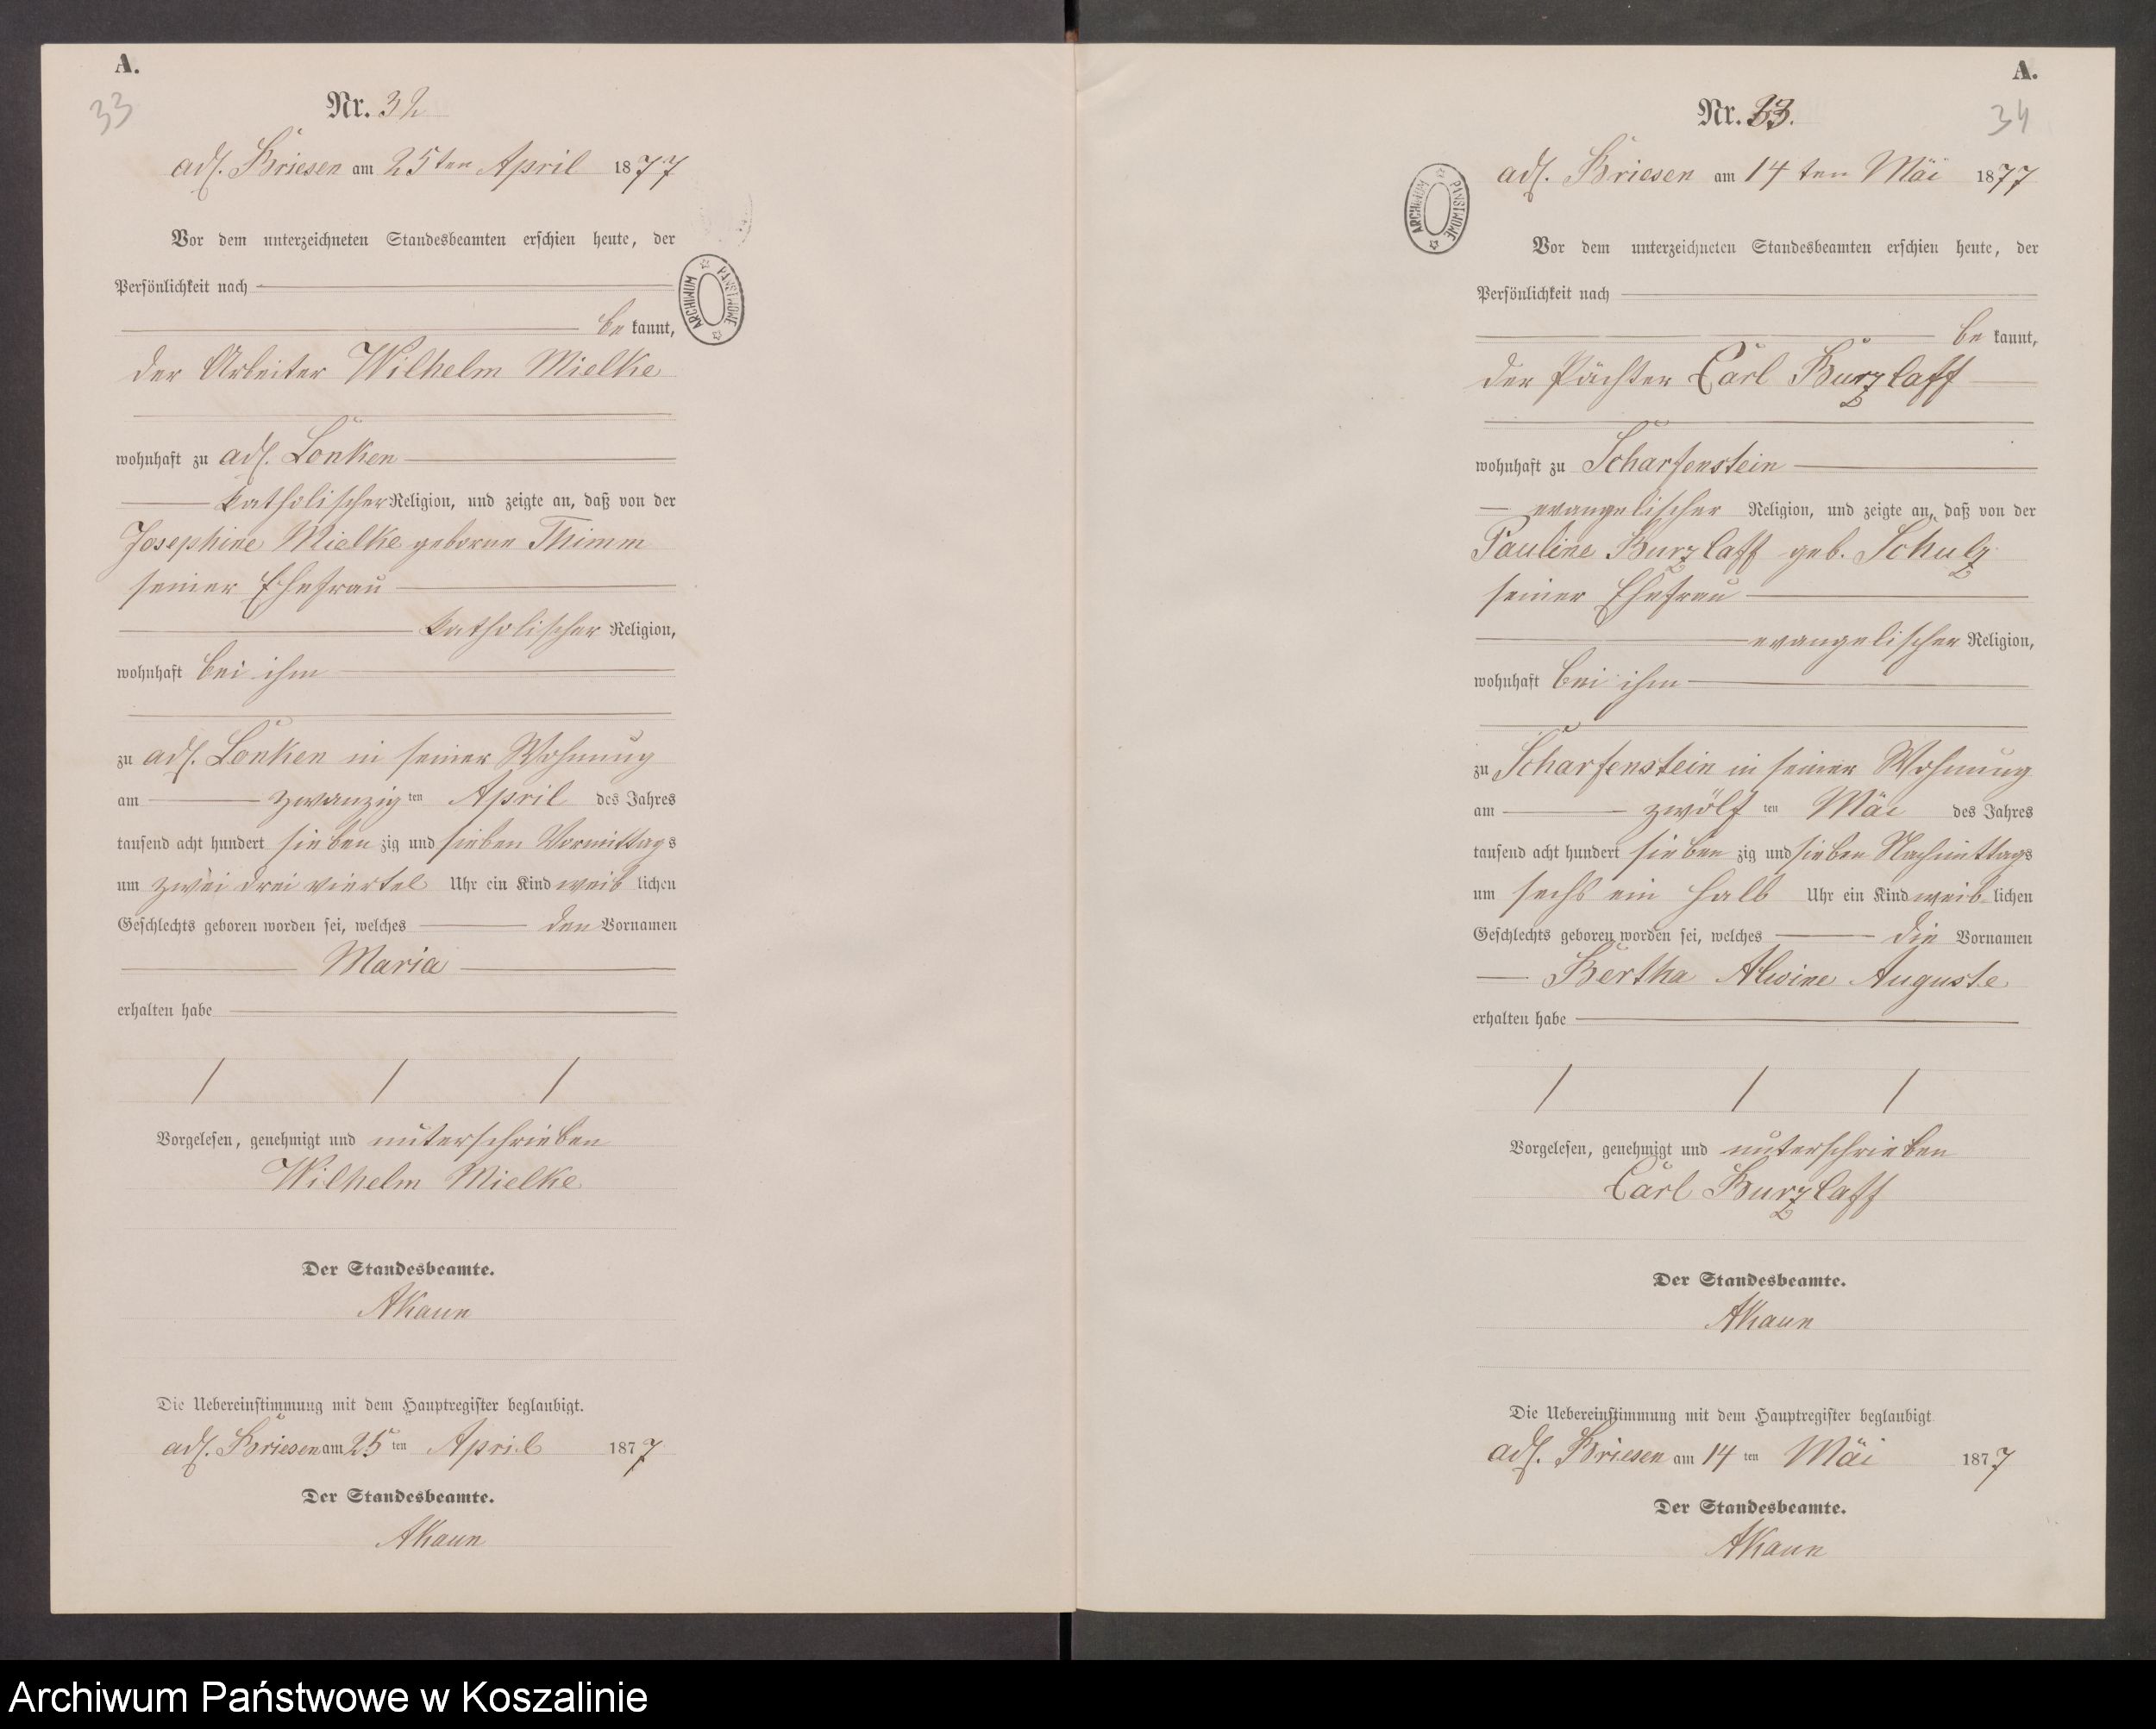 A.
33
Nr. 32
adl. Briesen am 25ten April 1877
Vor dem unterzeichneten Standesbeamten erschien heute, der
Persönlichkeit nach
be kannt,
der Arbeiter Wilhelm Mielke
wohnhaft zu adl. Lonken
katholischer Religion, und zeigte an, daß von der
Josephine Mielke geborne Thimm
seiner Ehefrau
katholischer Religion,
wohnhaft bei ihm
zu adl. Lonken in seiner Wohnung
am zwanzig ten April des Jahres
tausend acht hundert sieben zig und sieben Vormittags
um zwei drei viertel Uhr ein Kind weib lichen
Geschlechts geboren worden sei, welches den Vornamen
Maria
erhalten habe
Vorgelesen, genehmigt und unterschrieben
Wilhelm Mielke
Der Standesbeamte.
AKaun
Die Uebereinstimmung mit dem Hauptregister beglaubigt.
adl. Briesen am 25 ten April 1877
Der Standesbeamte.
AKaun
ARCHIWUM PAŃSTWOWE
A.
34
Nr. 33.
adl. Briesen am 14 ten Mai 1877
ARCHIWUM PAŃSTWOWE
Vor dem unterzeichneten Standesbeamten erschien heute, der
Persönlichkeit nach
be kannt,
der Pächter Carl Burzlaff
wohnhaft zu Scharfenstein
evangelischer Religion, und zeigte an, daß von der
Pauline Burzlaff geb. Schulz
seiner Ehefrau
evangelischer Religion,
wohnhaft bei ihm
zu Scharfenstein in seiner Wohnung
am zwölf ten Mai des Jahres
tausend acht hundert sieben zig und sieben Nachmittags
um sechs ein halb Uhr ein Kind weib lichen
Geschlechts geboren worden sei, welches die Vornamen
Bertha Alwine Auguste
erhalten habe
Vorgelesen, genehmigt und unterschrieben
Carl Burzlaff
Der Standesbeamte.
AKaun
Die Uebereinstimmung mit dem Hauptregister beglaubigt
adl. Briesen am 14 ten Mai 1877
Der Standesbeamte.
AKaun
Archiwum Państwowe w Koszalinie